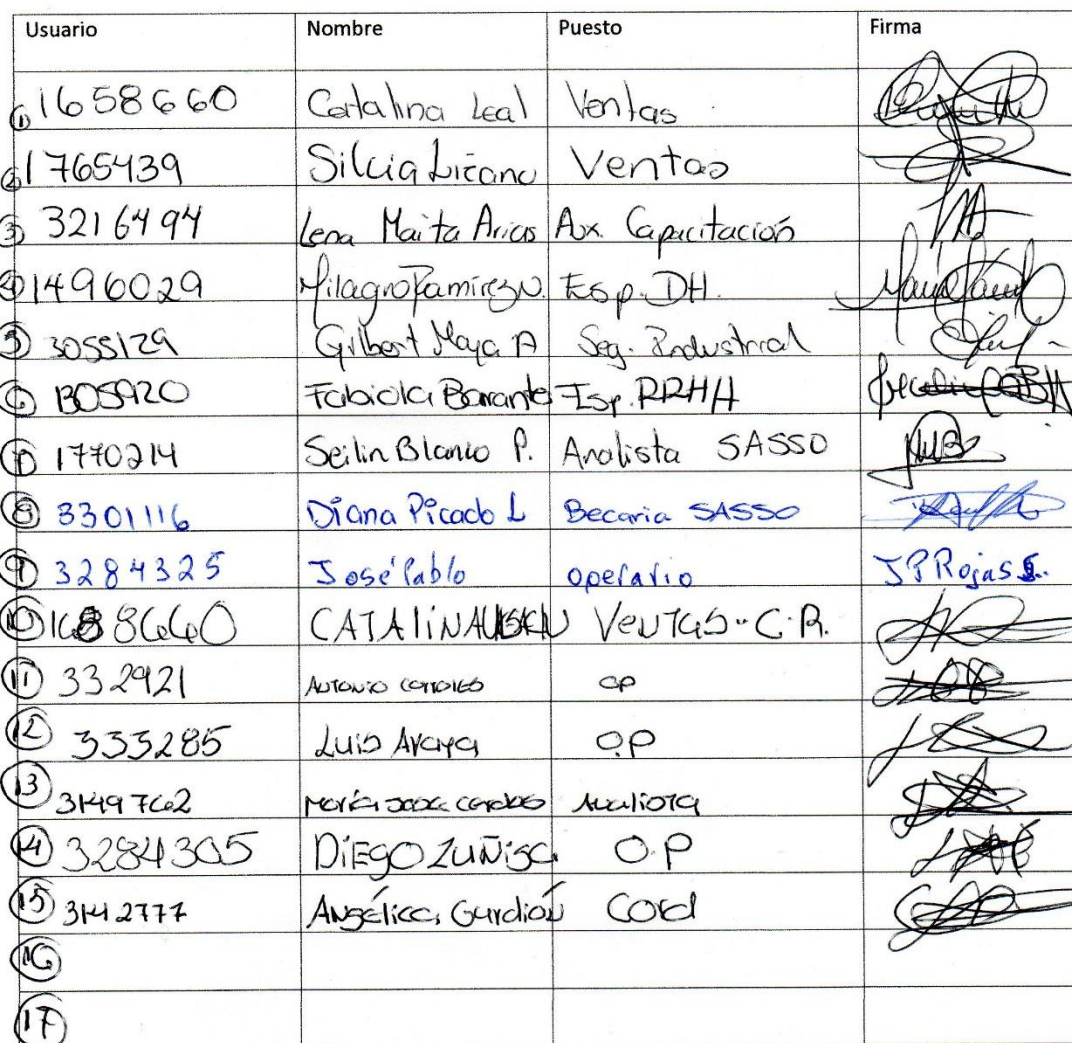 Usuario Nombre Puesto Firma
1 1658660 Catalina Leal Ventas
2 1765439 Silcia Lizano Ventas
3 3216494 Lena Maita Arias Aux. Capacitación
4 1496029 Milagro Ramírez N. Esp. DH.
5 3055129 Gilbert Maya A Seg. Industrial
6 1305920 Fabiola Barrante Esp. RRHH
7 1770214 Seilin Blanco P. Analista SASSO
8 3301116 Diana Picado L Becaria SASSO
9 3284325 José Pablo operario JP Rojas S.
10 CATALINA VENTAS-C.R.
11 332921 ANTONIO OP
12 333285 Luis Araya O.P
13 3149762 María
14 3284305 DIEGO ZUÑIGA O.P
15 3142777 Angélica Gurdián Cord
16
17